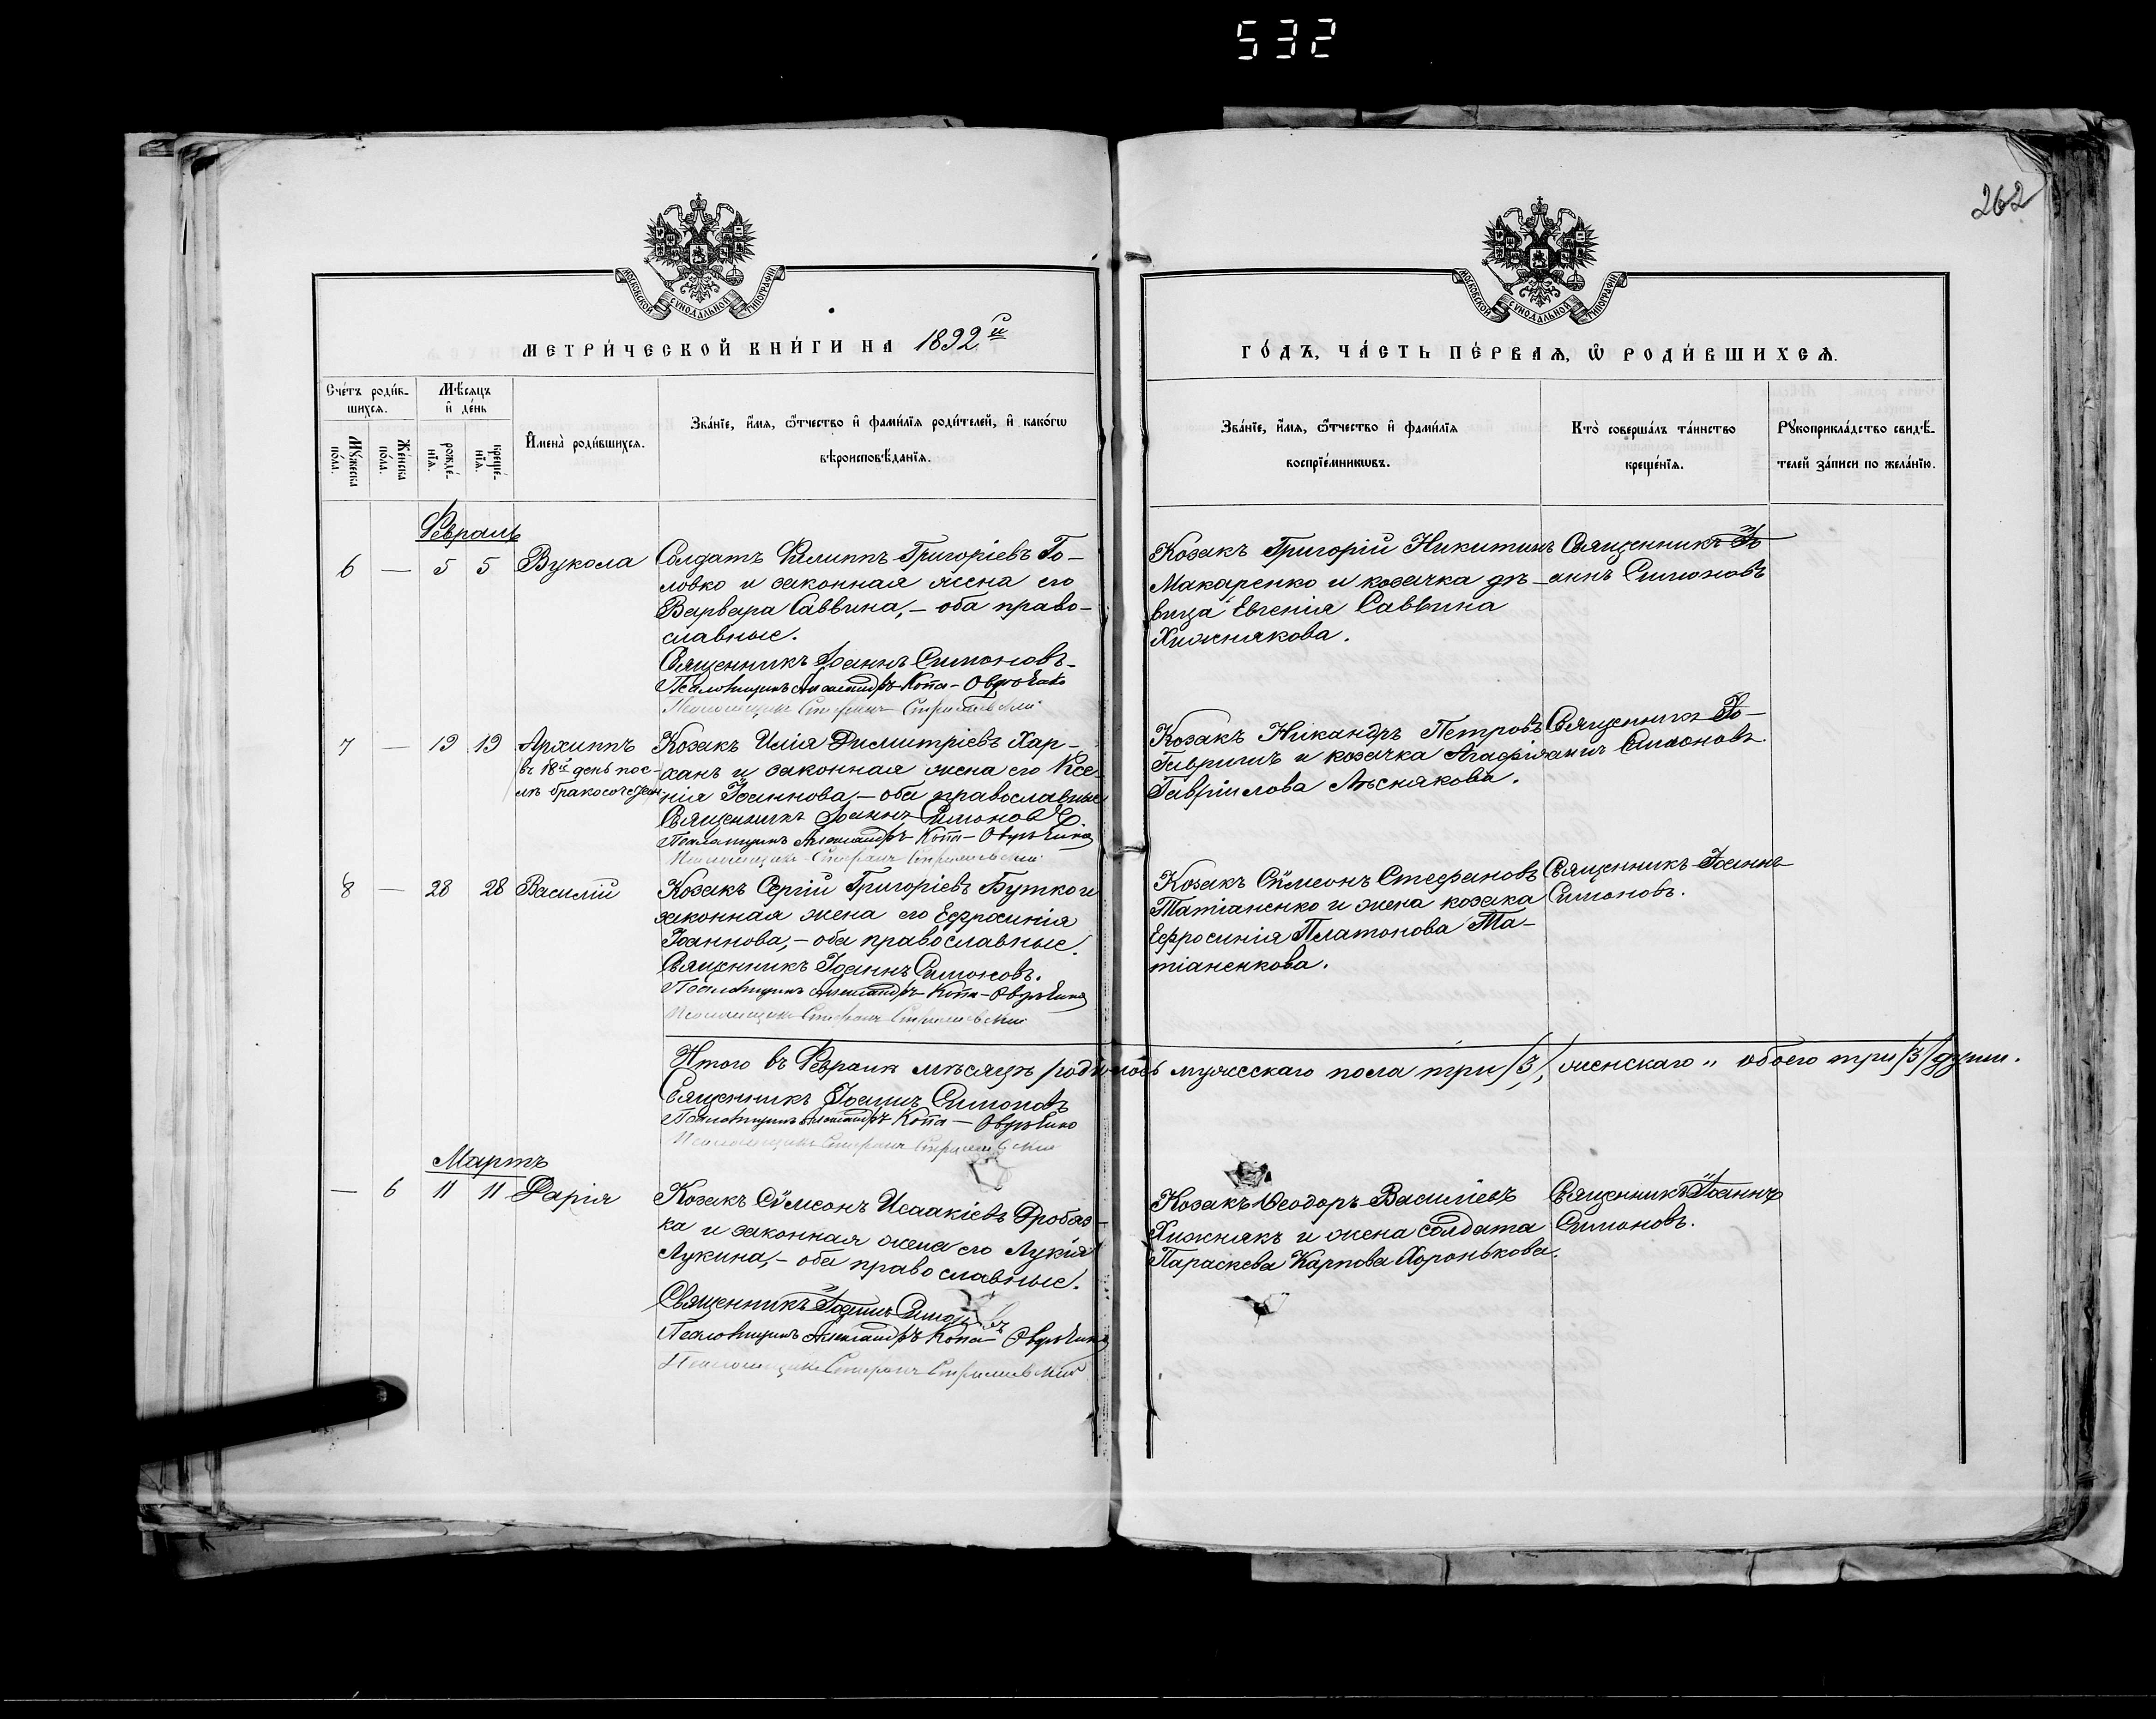 532
262
МОСКОВСКОЙ СУНОДАЛЬНОЙ ТИПОГРАФІИ
МОСКОВСКОЙ СУНОДАЛЬНОЙ ТИПОГРАФІИ
МЕТРИ́ЧЕСКОЙ КНИ́ГИ НА 1892 й
ГО́ДЪ, ЧА́СТЬ ПЕ́РВАѦ, Ѡ҆ РОДИ́ВШИХСѦ.
Сче́тъ роди́в-
шихсѧ.
Мѣ́сѧцъ
и҆ де́нь
Мꙋ́жеска
по́ла.
Же́нска
по́ла.
рожде́-
нїѧ.
креще́-
нїѧ.
И҆мена̀ роди́вшихсѧ.
Зва́нїе, и҆́мѧ, ѻ҆́тчество и҆ фами́лїѧ роди́телей, и҆ како́гѡ
вѣроисповѣ́данїѧ.
Зва́нїе, и҆́мѧ, ѻ҆́тчество и҆ фами́лїѧ
воспрїе́мникѡвъ.
Кто̀ соверша́лъ та́инство
креще́нїѧ.
Рꙋкоприкла́дство свидѣ́-
телей за́писи по жела́нїю.
Февраль
6 — 5 5 Вукола
Солдатъ Филиппъ Григоріевъ Го-
ловко и законная жена его
Варвара Саввина, — оба право-
славные.
Священникъ Іоаннъ Симоновъ.
Псаломщикъ Александръ Копа-Овдѣенко
Псаломщикъ Стефанъ
Козакъ Григорій Никитинъ
Макаренко и козачка дѣ-
вица Евгенія Саввина
Хижнякова.
Священникъ Іо
аннъ Симоновъ
7 — 19 19 Архиппъ
въ 18й день пос-
лѣ бракосочетан.
Козакъ Илія Димитріевъ Хар-
ханъ и законная жена его Ксе-
нія Іоаннова, — оба православные
Священникъ Іоаннъ Симоновъ
Псаломщикъ Александръ Копа-Овдѣенко
Псаломщикъ Стефанъ
Козакъ Никандръ Петровъ
Гавришъ и козачка Агафія
Гавріилова Лѣснякова.
Священникъ Іо-
аннъ Симоновъ.
8 — 28 28 Василій
Козакъ Сергій Григоріевъ Бутко и
законная жена его Ефросинія
Іоаннова, — оба православные.
Священникъ Іоаннъ Симоновъ.
Псаломщикъ Александръ Копа-Овдѣенко
Псаломщикъ Стефанъ
Козакъ Сѵмеонъ Стефановъ
Татіаненко и жена козака
Ефросинія Платонова Та-
тіаненкова.
Священникъ Іоаннъ
Симоновъ.
Итого въ Февралѣ мѣсяцѣ родилось мужескаго пола три /3/, женскаго „ обоего три /3/ души.
Священникъ Іоаннъ Симоновъ
Псаломщикъ Александръ Копа-Овдѣенко
Псаломщикъ Стефанъ
Мартъ
— 6 11 11 Дарія
Козакъ Сѵмеонъ Исаакіевъ Дробяз-
ка и законная жена его Лукія
Лукина, — оба православные.
Священникъ Іоаннъ Симоновъ
Псаломщикъ Александръ Копа-Овдѣенко
Псаломщикъ Стефанъ
Козакъ Ѳеодоръ Василіевъ
Хижнякъ и жена солдата
Параскева Карпова Хоронькова.
Священникъ Іоаннъ
Симоновъ.